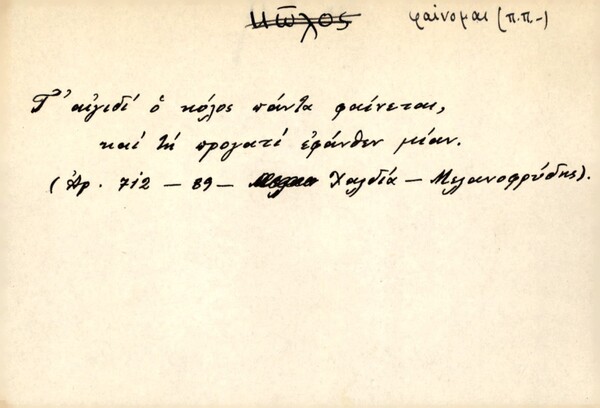 κῶλος φαίνομαι (π.π-)
Τ' αἰγιδί ὁ κόλος πάντα φαίνεται,
καί τή προγατί ἐφάνθεν μίαν.
(Ἀρ. 712 - 89 - Χαλδία - Μελανοφρύδης).